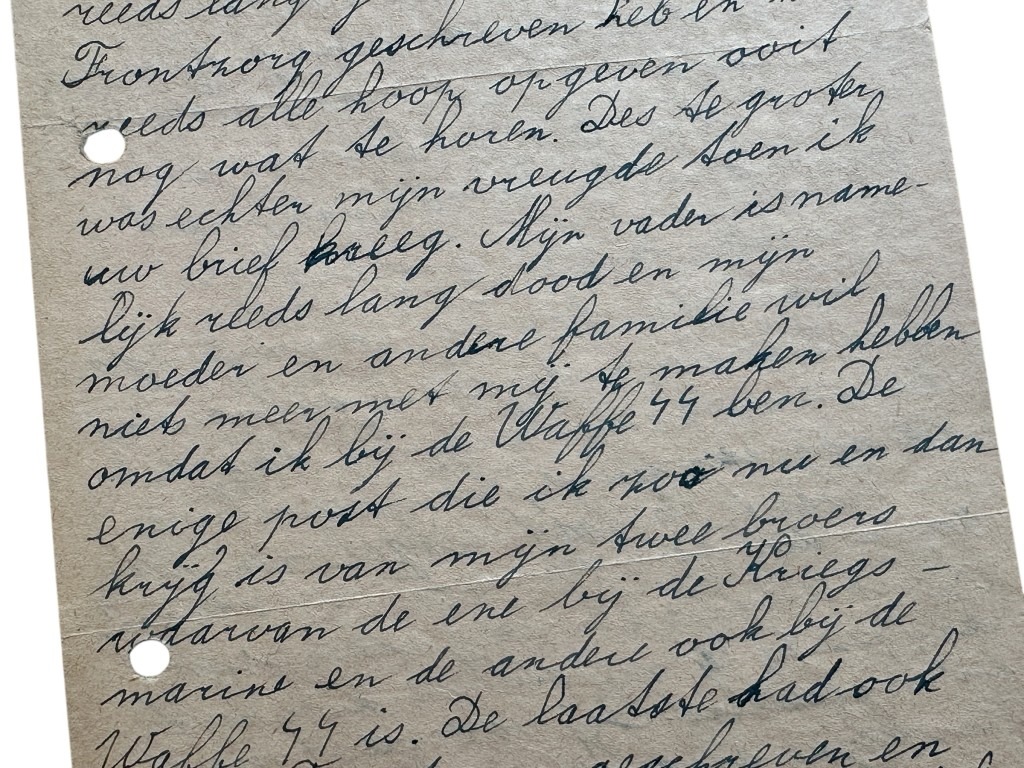 reeds lang
Frontzorg geschreven heb en
reeds alle hoop opgeven ooit
nog wat te horen. Des te groter
was echter mijn vreugde toen ik
uw brief kreeg. Mijn vader is name-
lijk reeds lang dood en mijn
moeder en andere familie wil
niets meer met mij te maken hebben
omdat ik bij de Waffe SS ben. De
enige post die ik zoo nu en dan
krijg is van mijn twee broers
waarvan de ene bij de Kriegs-
marine en de andere ook bij de
Waffe SS is. De laatste had ook
geschreven en